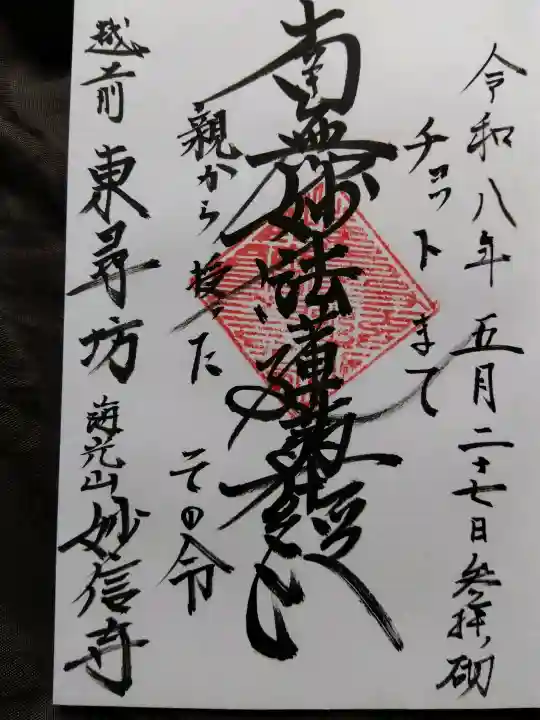 令和八年五月二十七日参拝ノ砌
チョットまて
南無妙法蓮華経
親から授った
その命
越前東尋坊海光山妙信寺